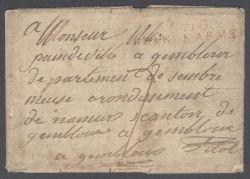 a Monsieur
GRANDE ARMÉE
a gemblour
de partement de sembre
meuse arondisement
de namur canton de
gemblour a gembloux
a gembloux